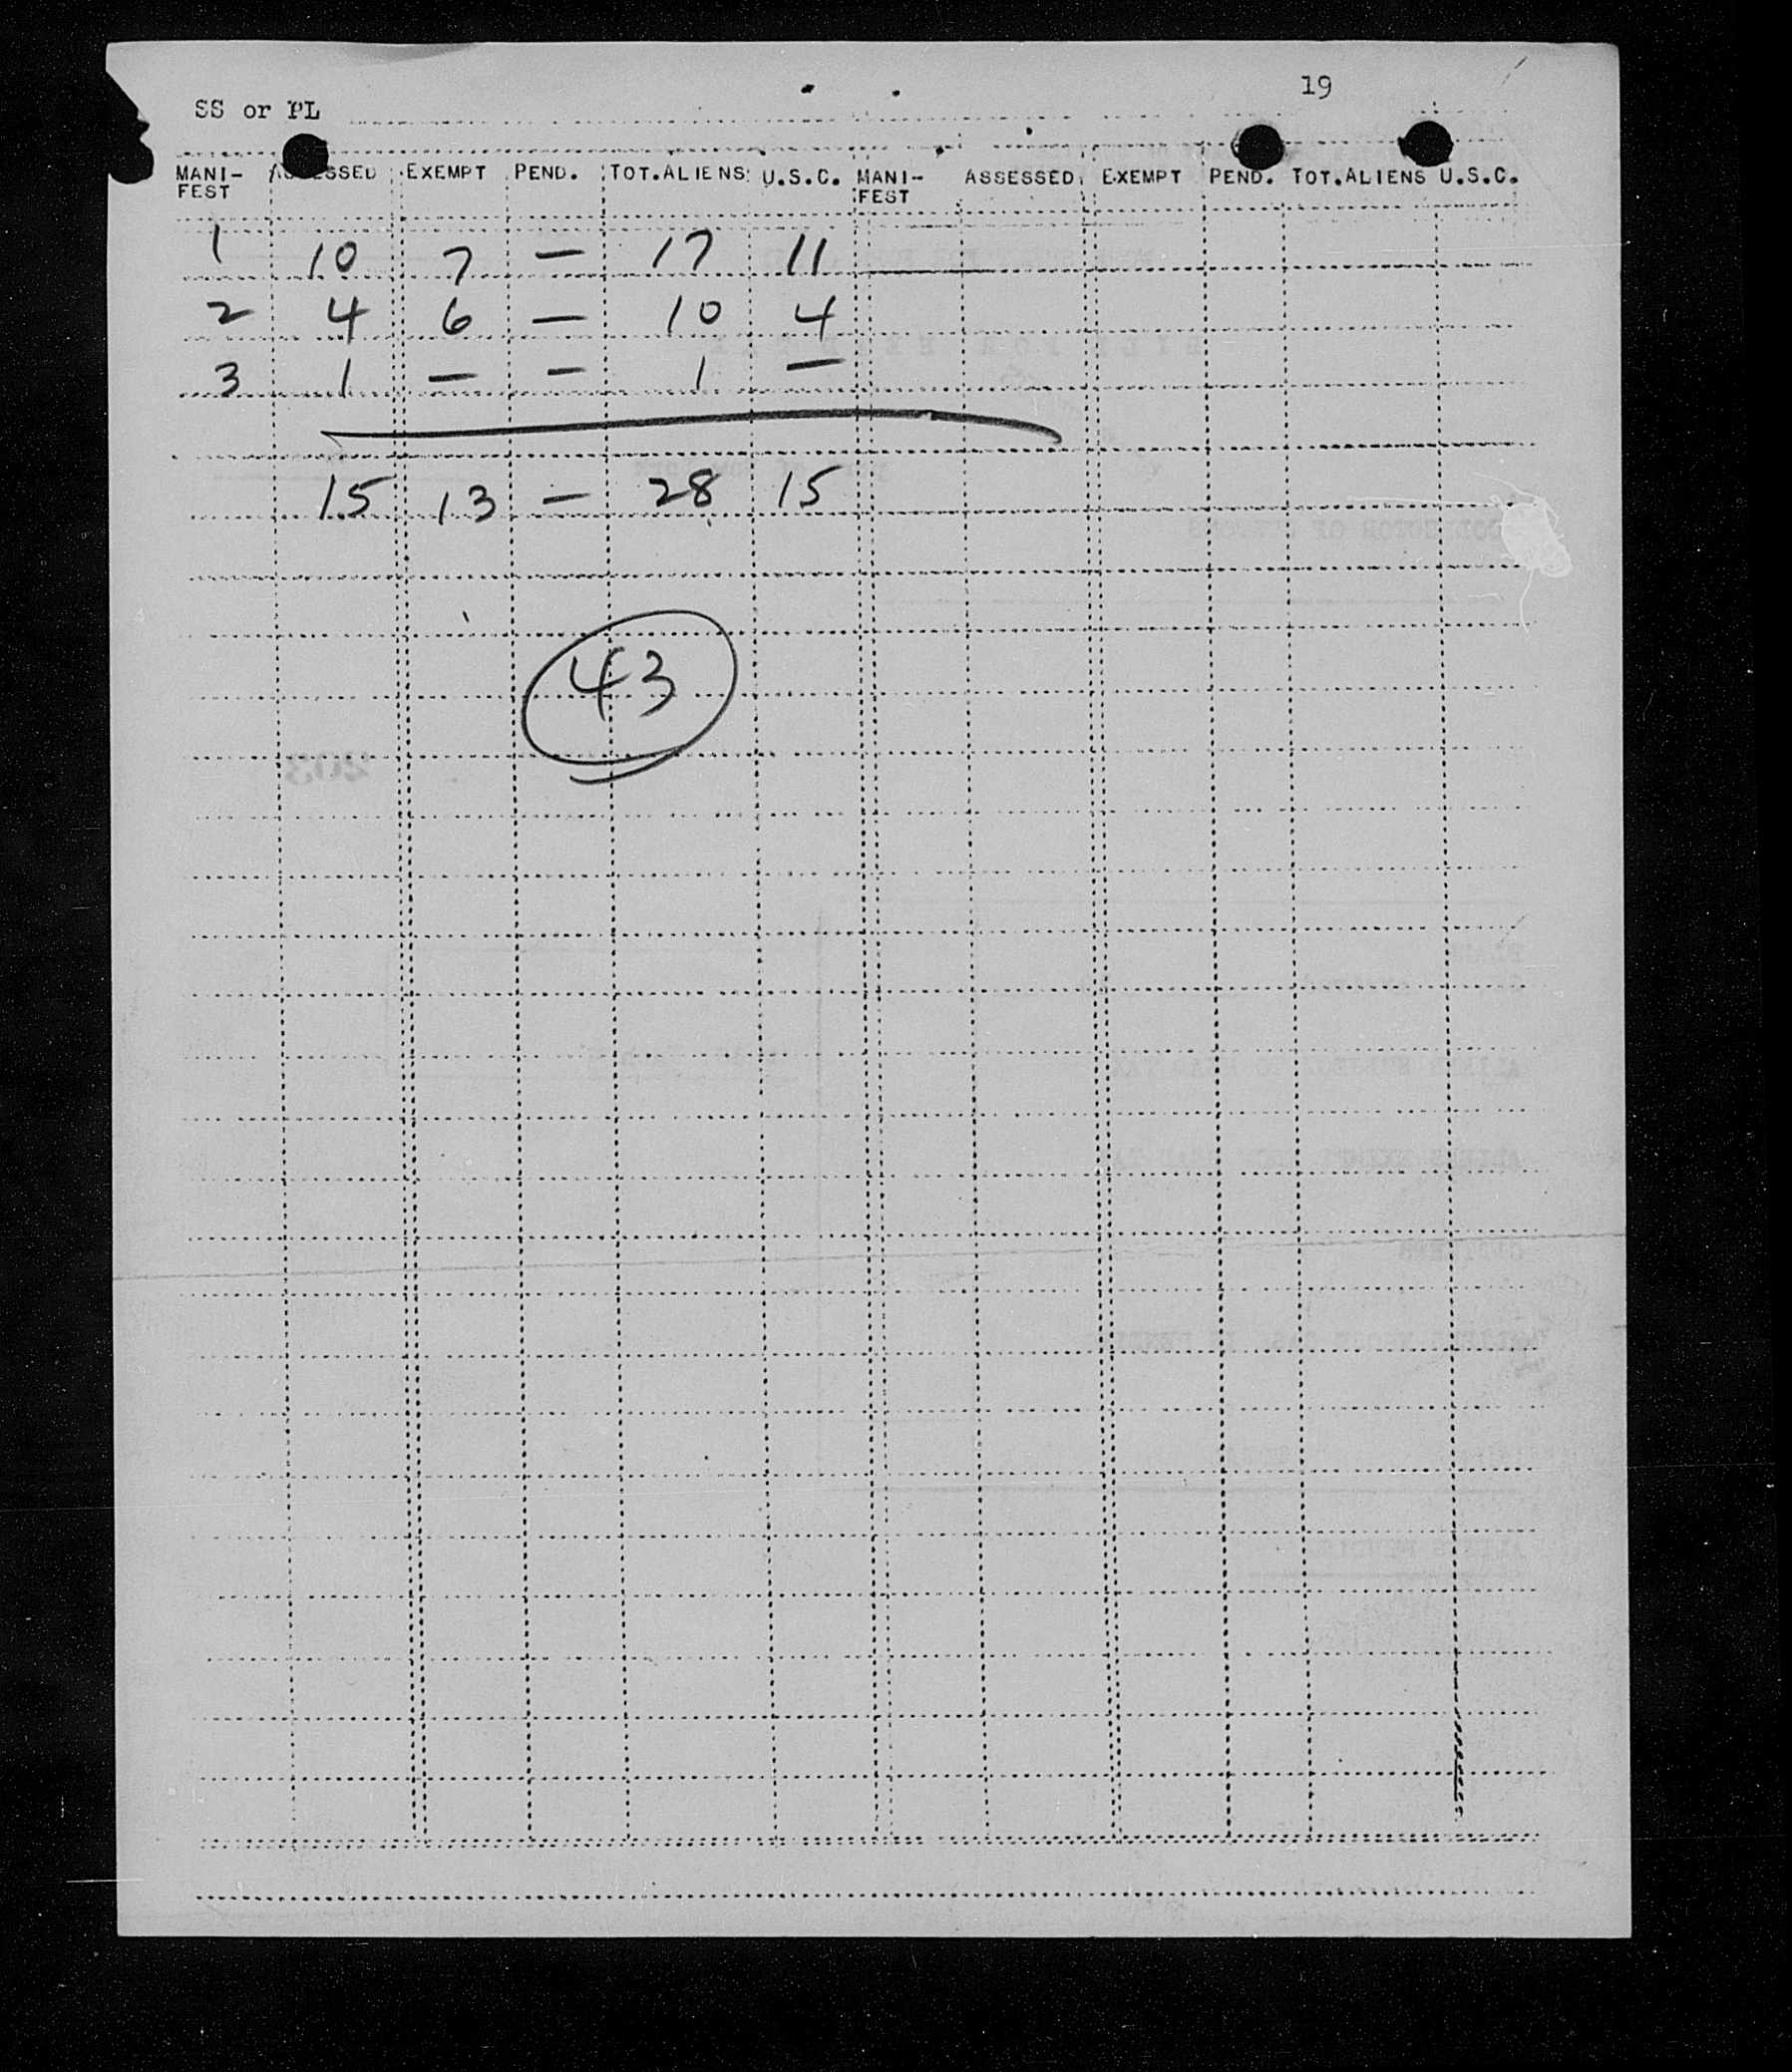 19
SS or PL
MANI- ASSESSED EXEMPT PEND. TOT.ALIENS U.S.C. MANI- ASSESSED EXEMPT PEND. TOT.ALIENS U.S.C.
FEST FEST
1 10 7 — 17 11
2 4 6 — 10 4
3 1 — — 1 —
15 13 — 28 15
43